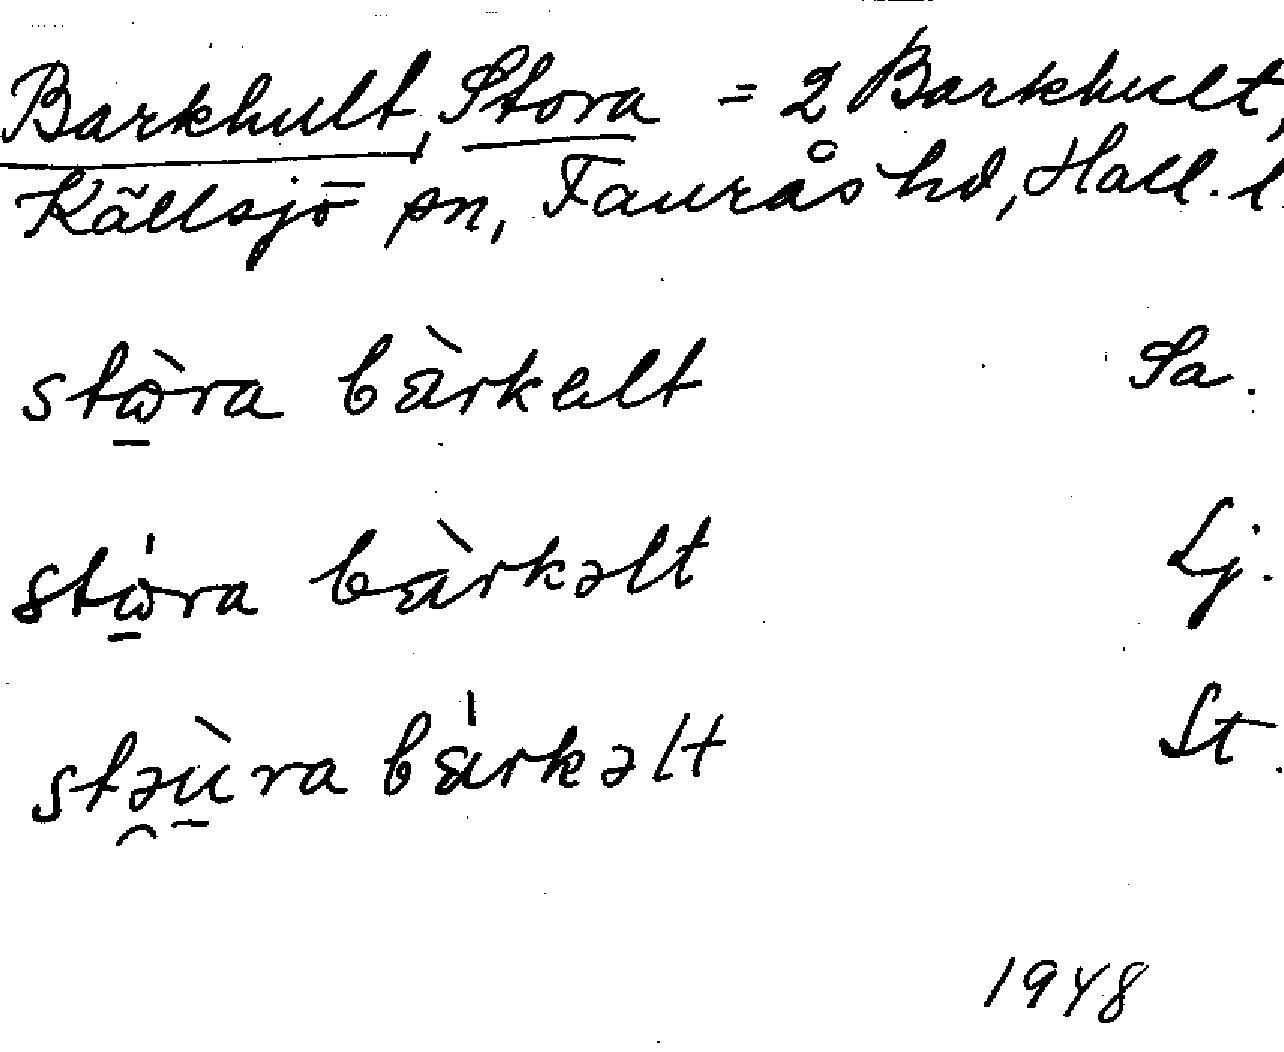 Barkhult, Stora = 2 Barkhult,
Källsjö sn, Faurås hd, Hall. l
stɷ̠̀ra bàrkelt Sa.
stɷ̠́ra bàrkəlt Lj.
stə̯ù̠ra bárkəlt St.
1948